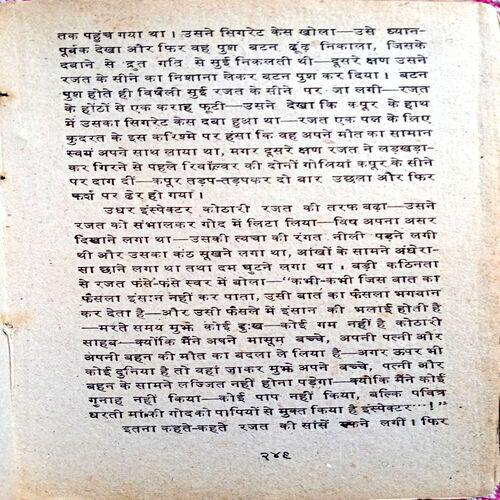 तक पहुंच गया था। उसने सिगरेट केस खोला—उसे ध्यान-
पूर्वक देखा और फिर वह पुश बटन ढूंढ़ निकाला, जिसके
दबाने से द्रुत गति से सुई निकलती थी—दूसरे क्षण उसने
रजत के सीने का निशाना लेकर बटन पुश कर दिया। बटन
पुश होते ही विषैली सुई रजत के सीने पर जा लगी—रजत
के होंठों से एक कराह फूटी—उसने देखा कि कपूर के हाथ
में उसका सिगरेट केस दबा हुआ था—रजत एक पल के लिए
कुदरत के इस करिश्मे पर हंसा कि वह अपने मौत का सामान
स्वयं अपने साथ लाया था, मगर दूसरे क्षण रजत ने लड़खड़ा-
कर गिरने से पहले रिवॉल्वर की दोनों गोलियां कपूर के सीने
पर दाग दीं—कपूर तड़प-तड़पकर दो बार उछला और फिर
फर्श पर ढेर हो गया।
उधर इंस्पेक्टर कोठारी रजत की तरफ बढ़ा—उसने
रजत को संभालकर गोद में लिटा लिया—विष अपना असर
दिखाने लगा था—उसकी त्वचा की रंगत नीली पड़ने लगी
थी और उसका कंठ सूखने लगा था, आंखों के सामने अंधेरा-
सा छाने लगा था तथा दम घुटने लगा था। बड़ी कठिनता
से रजत फंसे-फंसे स्वर में बोला—"कभी-कभी जिस बात का
फैसला इंसान नहीं कर पाता, उसी बात का फैसला भगवान
कर देता है—और उसी फैसले में इंसान की भलाई होती है
—मरते समय मुझे कोई दुःख—कोई गम नहीं है कोठारी
साहब—क्योंकि मैंने अपने मासूम बच्चे, अपनी पत्नी और
अपनी बहन की मौत का बदला ले लिया है—अगर ऊपर भी
कोई दुनिया है तो वहां जाकर मुझे अपने बच्चे, पत्नी और
बहन के सामने लज्जित नहीं होना पड़ेगा—क्योंकि मैंने कोई
गुनाह नहीं किया—कोई पाप नहीं किया, बल्कि पवित्र
धरती मां की गोद को पापियों से मुक्त किया है इंस्पेक्टर···!"
इतना कहते-कहते रजत की सांसें रुकने लगीं। फिर
२४९